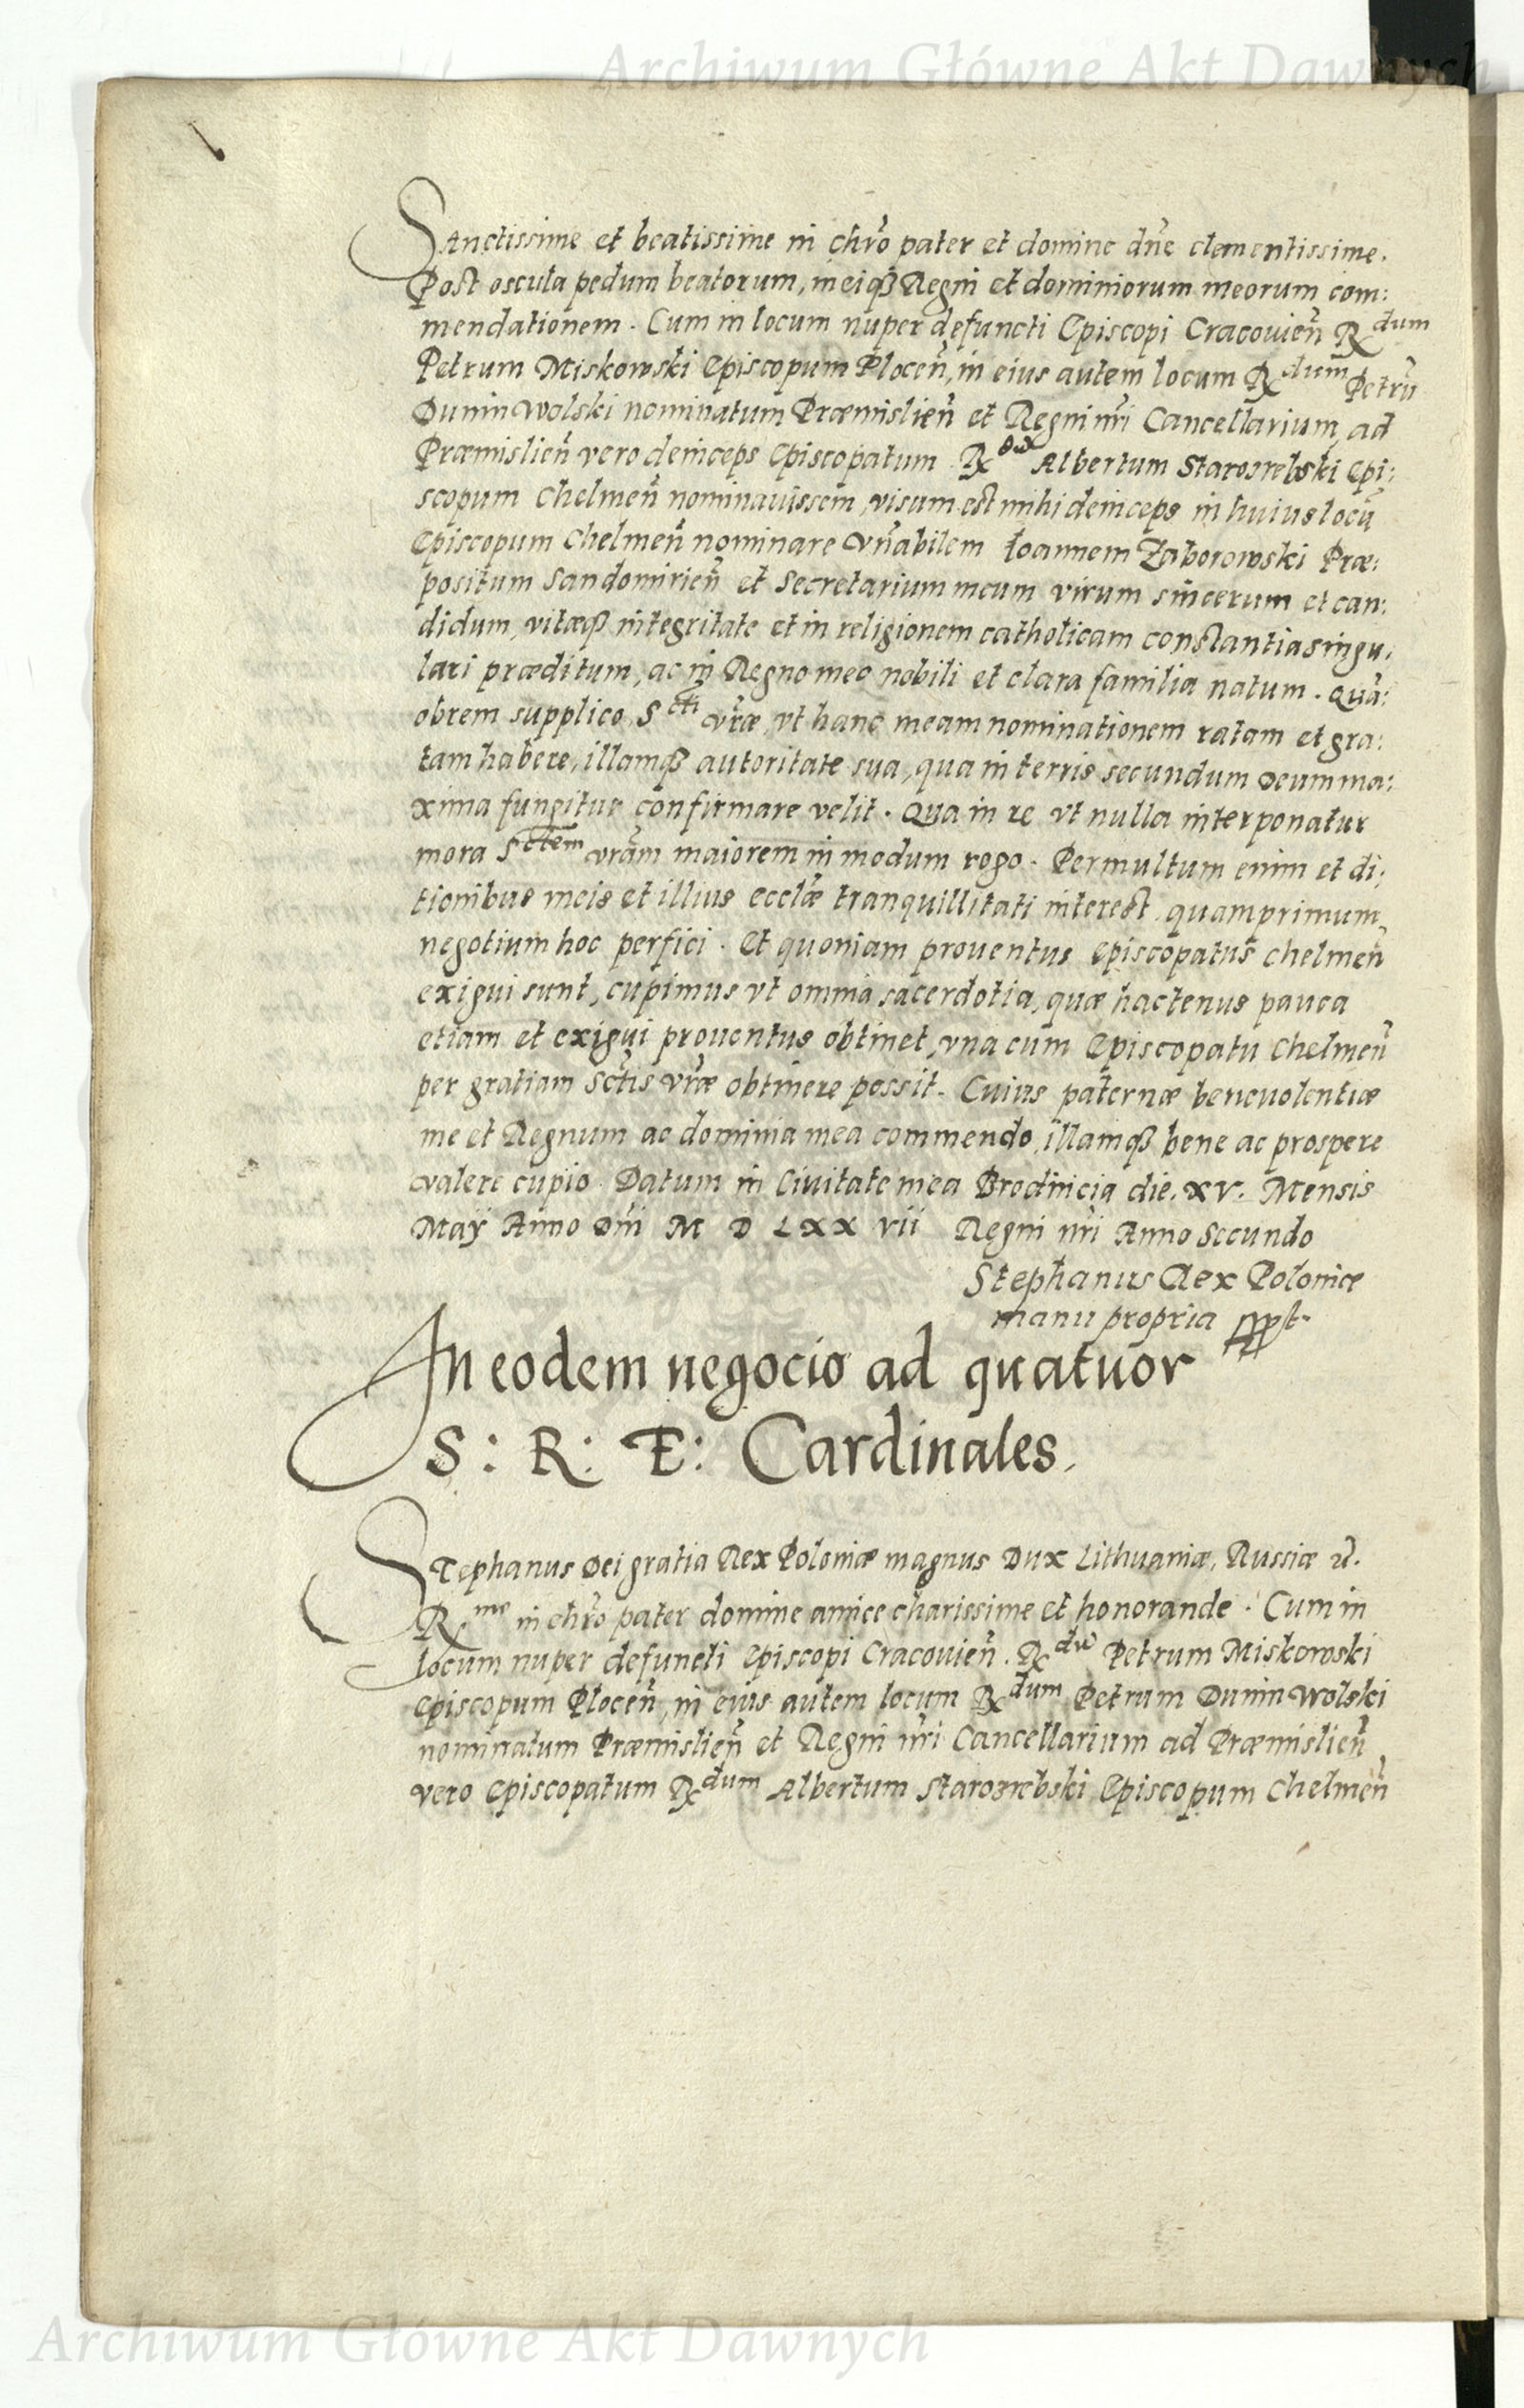 Archiwum Główne Akt Dawnych
Sanctissime et beatissime in chro pater et domine dne clementissime.
Post oscula pedum beatorum, meiqȝ Regni et dominiorum meorum com:
mendationem. Cum in locum nuper defuncti Episcopi Cracouien̄ R dum
Petrum Miskowski Episcopum Plocen̄, in eius autem locum R dum Petrū
Dunin Wolski nominatum Præmislien̄ et Regni nr̄i Cancellarium, ad
Præmislien̄ vero deinceps Episcopatum R Albertum Starozrebski Epi:
scopum Chelmen̄ nominauissem, visum est mihi deinceps in huius locū
Episcopum Chelmen̄ nominare vn̄abilem Ioannem Zaborowski Præ:
positum Sandomirien̄ et Secretarium meum virum sincerum et can:
didum, vitæqȝ integritate et in religionem catholicam constantia singu:
lari præditum, ac in Regno meo nobili et clara familia natum. Quā:
obrem supplico S cti vr̄æ, vt hanc meam nominationem ratam et gra:
tam habere, illamqȝ autoritate sua, qua in terris secundum Deum ma:
xima fungitur confirmare velit. Qua in re vt nulla interponatur
mora S ctem vr̄am maiorem in modum rogo. Permultum enim et di:
tionibus meis et illius eccl̄æ tranquillitati interest quamprimum
negotium hoc perfici. Et quoniam prouentus Episcopatus Chelmen̄
exigui sunt, cupimus vt omnia sacerdotia, quæ hactenus pauca
etiam et exigui prouentus obtinet, vna cum Episcopatu Chelmen̄
per gratiam Sctis vr̄æ obtinere possit. Cuius paternæ beneuolentiæ
me et Regnum ac dominia mea commendo, illamqȝ bene ac prospere
valere cupio. Datum in Ciuitate mea Brodnicia die. xv. Mensis
Maÿ Anno Dn̄i M D L x x vii Regni nr̄i Anno Secundo
Stephanus Rex Poloniæ
manu propria
In eodem negocio ad quatuor
S: R: E: Cardinales.
Stephanus Dei gratia Rex Poloniæ magnus Dux Lithuaniæ, Russiæ
R me in chr̄o pater domine amice charissime et honorande. Cum in
locum nuper defuncti Episcopi Cracouien̄. R du Petrum Miskowski
Episcopum Plocen̄, in eius autem locum R dum Petrum Dunin Wolski
nominatum Præmislien̄ et Regni nr̄i Cancellarium ad Præmislien̄
vero Episcopatum R dum Albertum Starozrebski Episcopum Chelmen̄
Archiwum Główne Akt Dawnych